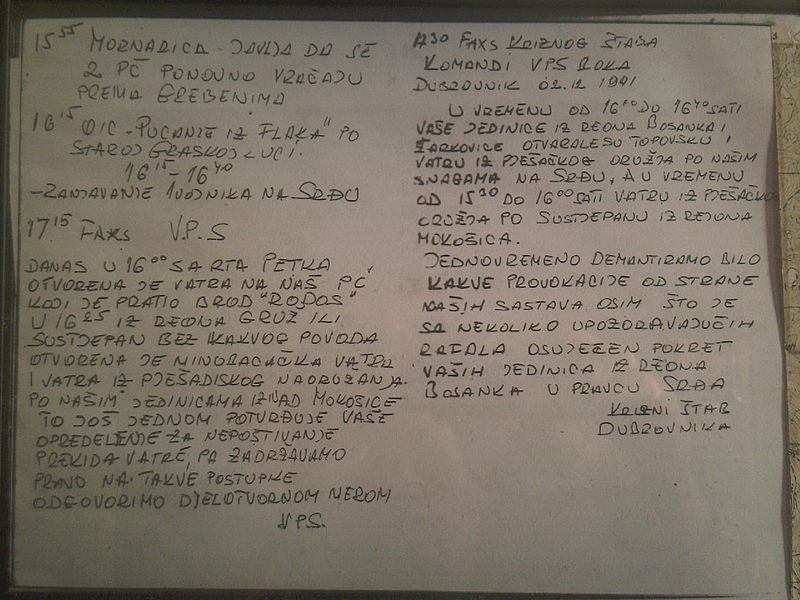 15⁵⁵ MORNARICA - JAVLJA DA SE
2 PČ PONOVNO VRAČAJU
PREMA GREBENIMA
16¹⁵ OIC - PUCANJE IZ FLAKA" PO
STAROJ GRASKOJ LUCI.
16¹⁵ - 16⁴⁰
- RANJAVANJE 1 VOJNIKA NA SRĐU
17¹⁵ FAXS V.P.S
DANAS U 16⁰⁰ SA RTA PETKA
OTVORENA JE VATRA NA NAŠ PČ
KOJI JE PRATIO BROD "ROĐOS"
U 16²⁵ IZ REONA GRUŽ ILI
SUSTJEPAN BEZ KAKVOG POVODA
OTVORENA JE MINOBACAČKA VATRA
I VATRA IZ PJEŠADISKOG NAORUŽANJA.
PO NAŠIM JEDINICAMA IZNAD MOKOŠICE
TO JOŠ JEDNOM POTVRĐUJE VAŠE
OPREDELENJE ZA NEPOŠTIVANJE
PREKIDA VATRE, PA ZADRŽAVAMO
PRAVO NA TAKVE POSTUPKE
ODGOVORIMO DJELOTVORNOM MEROM
VPS.
FAXS KRIZNOG ŠTABA
KOMANDI VPS BOKA
DUBROVNIK 02.12 1991
U VREMENU OD 16⁰⁰ DO 16⁴⁰ SATI
VAŠE JEDINICE IZ REONA BOSANKA I
ŽARKOVICE OTVARALE SU TOPOVSKU I
VATRU IZ PJEŠAČKOG ORUŽJA PO NAŠIM
SNAGAMA NA SRĐU, A U VREMENU
OD 15³⁰ DO 16⁰⁰ SATI VATRU IZ PJEŠAČKOG
ORUŽJA PO SUSTJEPANU IZ REJONA
MOKOŠICA.
JEDNOVREMENO DEMANTIRAMO BILO
KAKVE PROVOKACIJE OD STRANE
NAŠIH SASTAVA OSIM ŠTO JE
SA NEKOLIKO UPOZORAVAJUČIH
RAFALA OSUJEČEN POKRET
VAŠIH JEDINICA IZ REONA
BOSANKA U PRAVCU SRĐA
KRIZNI ŠTAB
DUBROVNIKA